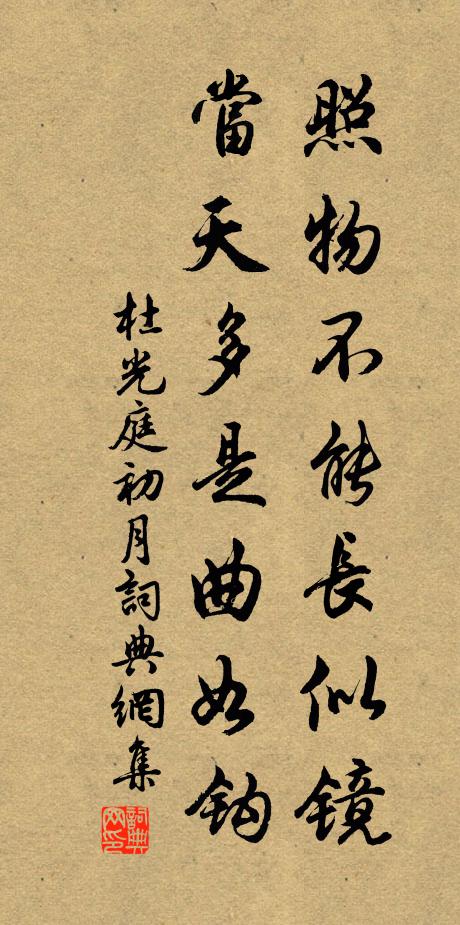 照物不能長似鏡
當天多是曲如鈎
杜光庭初月詞典網集
詞典网印